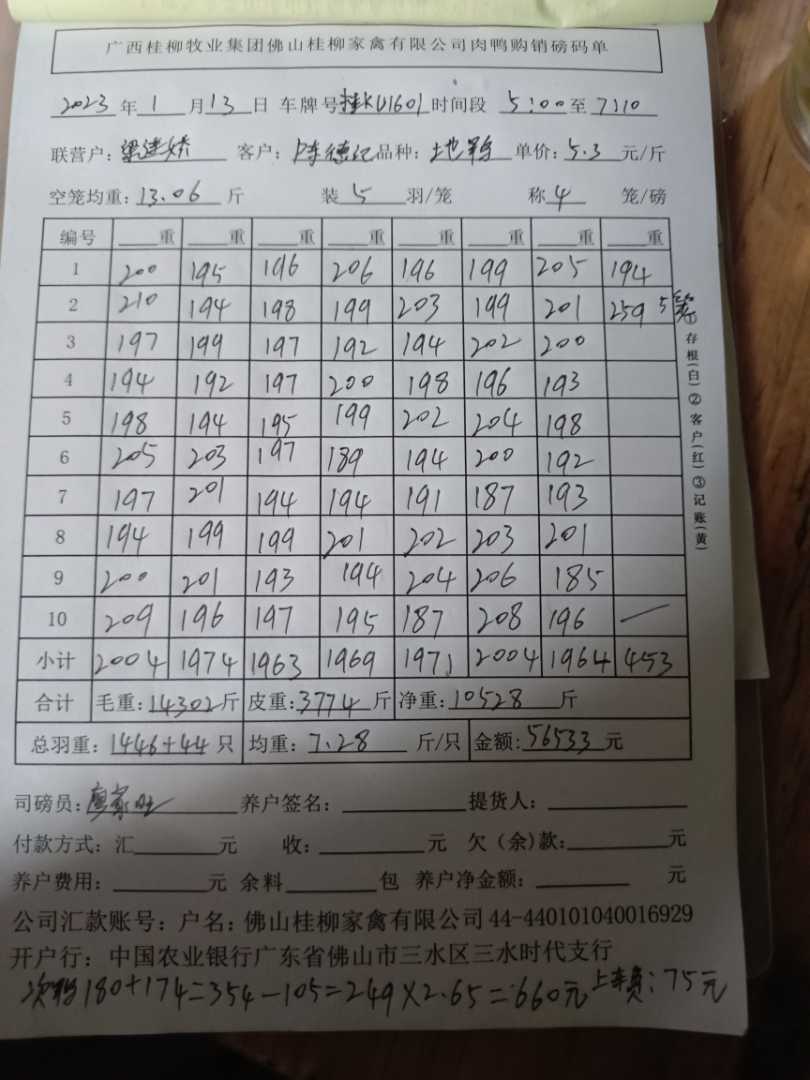 广西桂柳牧业集团佛山桂柳家禽有限公司肉鸭购销磅码单
2023年1月13日 车牌号桂KU1601时间段 5:00至7:10
联营户:梁建娇 客户:陈德记品种:土地鸭 单价:5.3元/斤
空笼均重:13.06斤 装5羽/笼 称4笼/磅
编号 重 重 重 重 重 重 重 重
1 200 195 196 206 196 199 205 194
2 210 194 198 199 203 199 201 259 5笼
3 197 199 197 192 194 202 200
4 194 192 197 200 198 196 193
5 198 194 195 199 202 204 198
6 205 203 197 189 194 200 192
7 197 201 194 194 191 187 193
8 194 199 199 201 202 203 201
9 200 201 193 194 204 206 185
10 209 196 197 195 187 208 196 —
小计 2004 1974 1963 1969 1971 2004 1964 453
合计 毛重:14302斤 皮重:3774斤 净重:10528斤
总羽重:1446+44只 均重:7.28斤/只 金额:56533元
司磅员:廖家旺 养户签名: 提货人:
付款方式:汇 元 收: 元 欠(余)款: 元
养户费用: 元 余料 包 养户净金额: 元
公司汇款账号:户名:佛山桂柳家禽有限公司44-440101040016929
开户行:中国农业银行广东省佛山市三水区三水时代支行
180+174=354-105=249×2.65=660元 上车费:75元
①存根(白)②客户(红)③记账(黄)